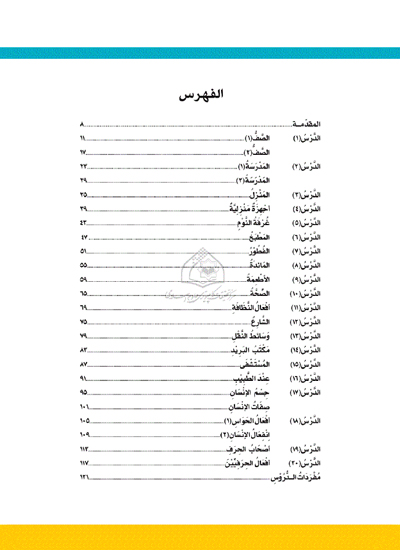 الفهرس
المقدّمـــة ... ٨
الدَّرْسُ(١) الصَّفُّ(١) ... ١١
الصَّفُّ(٢) ... ١٧
الدَّرْسُ(٢) المَدْرَسَةُ(١) ... ٢٣
المَدْرَسَةُ(٢) ... ٢٩
الدَّرْسُ(٣) المَنْزِلُ ... ٣٥
الدَّرْسُ(٤) أجْهِزَةٌ مَنْزِليَّةٌ ... ٣٩
الدَّرْسُ(٥) غُرْفَةُ النَّوْمِ ... ٤٣
الدَّرْسُ(٦) المَطْبَخُ ... ٤٧
الدَّرْسُ(٧) الفُطُوْرُ ... ٥١
الدَّرْسُ(٨) المَائدَةُ ... ٥٥
الدَّرْسُ(٩) الأطْعِمَةُ ... ٥٩
الدَّرْسُ(١٠) الصِّحَّةُ ... ٦٥
الدَّرْسُ(١١) أفْعَالُ النَّظَافَةِ ... ٦٩
الدَّرْسُ(١٢) الشَّارِعُ ... ٧٥
الدَّرْسُ(١٣) وَسَائطُ النَّقْلِ ... ٧٩
الدَّرْسُ(١٤) مَكْتَبُ البَرِيْدِ ... ٨٣
الدَّرْسُ(١٥) المُسْتَشْفَى ... ٨٧
الدَّرْسُ(١٦) عِنْدَ الطَّبِيْبِ ... ٩١
الدَّرْسُ(١٧) جِسْمُ الإنْسَانِ ... ٩٥
صِفَاتُ الإنْسَانِ ... ١٠١
الدَّرْسُ(١٨) أفْعَالُ الحَوَاسِ(١) ... ١٠٥
اِنْفِعَالُ الإنْسَانِ(٢) ... ١٠٩
الدَّرْسُ(١٩) أصْحَابُ الحِرَفِ ... ١١٣
الدَّرْسُ(٢٠) أفْعَالُ الحِرَفِيِّيْنَ ... ١١٧
مُفْرَدَاتُ الـدُّرُوْسِ ... ١٢١